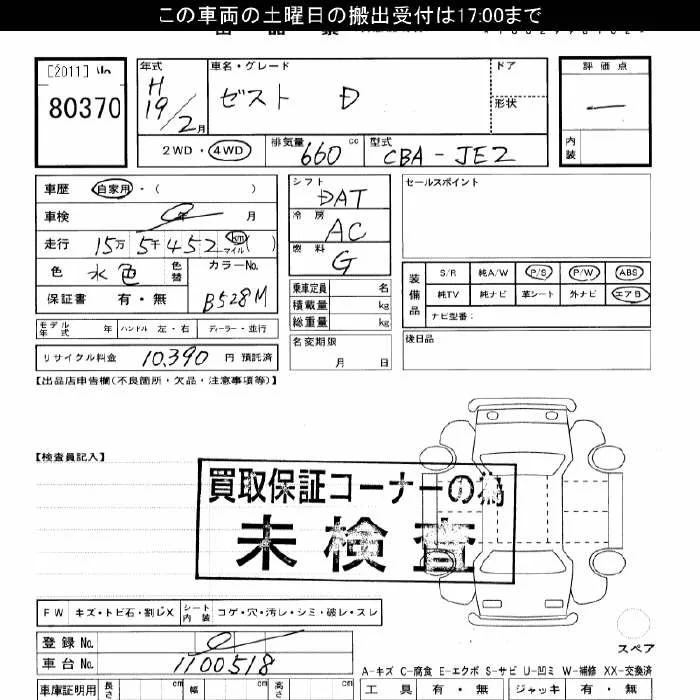 この車両の土曜日の搬出受付は17:00まで
[2011]
80370
年式
H
19/2月
車名・グレード
ゼスト D
ドア
形状
評価点
内装
2WD・4WD
排気量 660 cc
型式 CBA-JE2
車歴 自家用・( )
車検 0年 月
走行 15万5千452 km マイル ( )
色 水色 色替
カラーNo.
B528M
保証書 有・無
シフト
DAT
冷房
AC
燃料
G
乗車定員 名
積載量 kg
総重量 kg
セールスポイント
装備品
S/R 純A/W P/S P/W ABS
純TV 純ナビ 革シート 外ナビ エアB
ナビ型番:
モデル年式 年 ハンドル 左・右 ディーラー・並行
名変期限
月 日
後日品
リサイクル料金 10,390 円 預託済
【出品店申告欄(不良箇所・欠品・注意事項等)】
【検査員記入】
買取保証コーナーの為
未検査
FW キズ・トビ石・割レX シート内装 コゲ・穴・汚レ・シミ・破レ・スレ
登録No. 0
車台No. 1100518
スペア
A-キズ C-腐食 E-エクボ S-サビ U-凹ミ W-補修 XX-交換済
車庫証明用 長さ cm 幅 cm 高さ cm
工具 有・無 ジャッキ 有・無